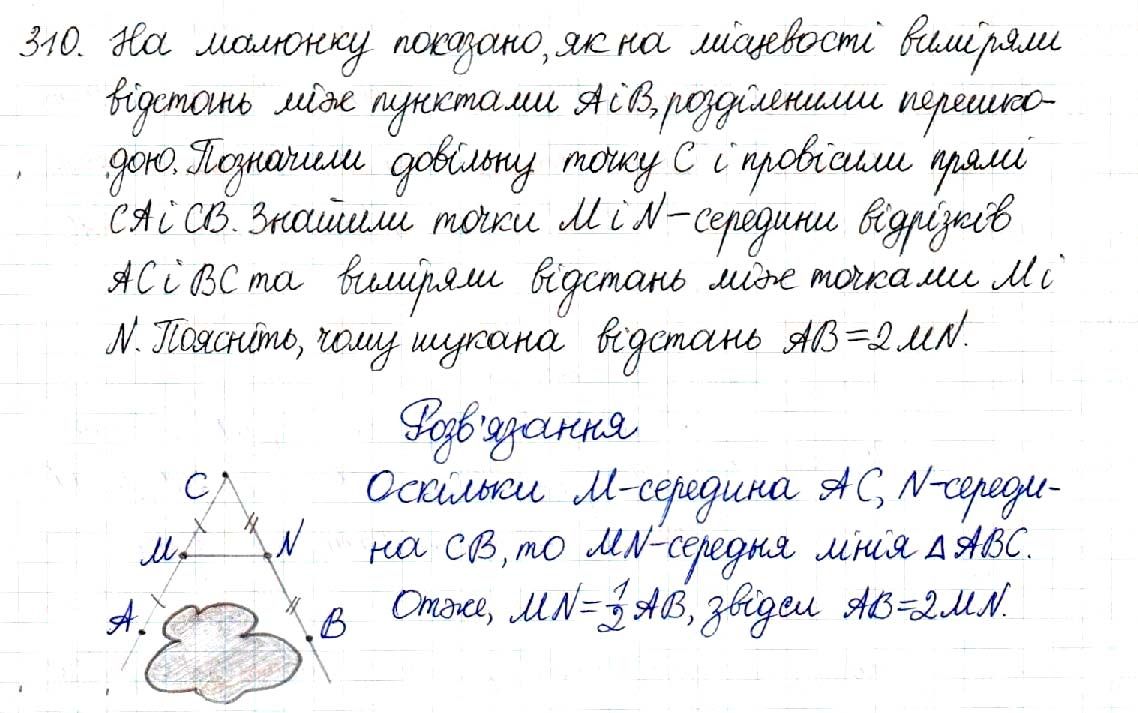 310. На малюнку показано, як на місцевості виміряли
відстань між пунктами А і В, розділеними перешко-
дою. Позначили довільну точку С і провісили прямі
СА і СВ. Знайшли точки М і N – середини відрізків
АС і ВС та виміряли відстань між точками М і
N. Поясніть, чому шукана відстань АВ = 2 MN.
Розв'язання
Оскільки М – середина АС, N – середи-
на СВ, то MN – середня лінія △ АВС.
Отже, MN = 1/2 АВ, звідси АВ = 2 MN.
C
M N
A B